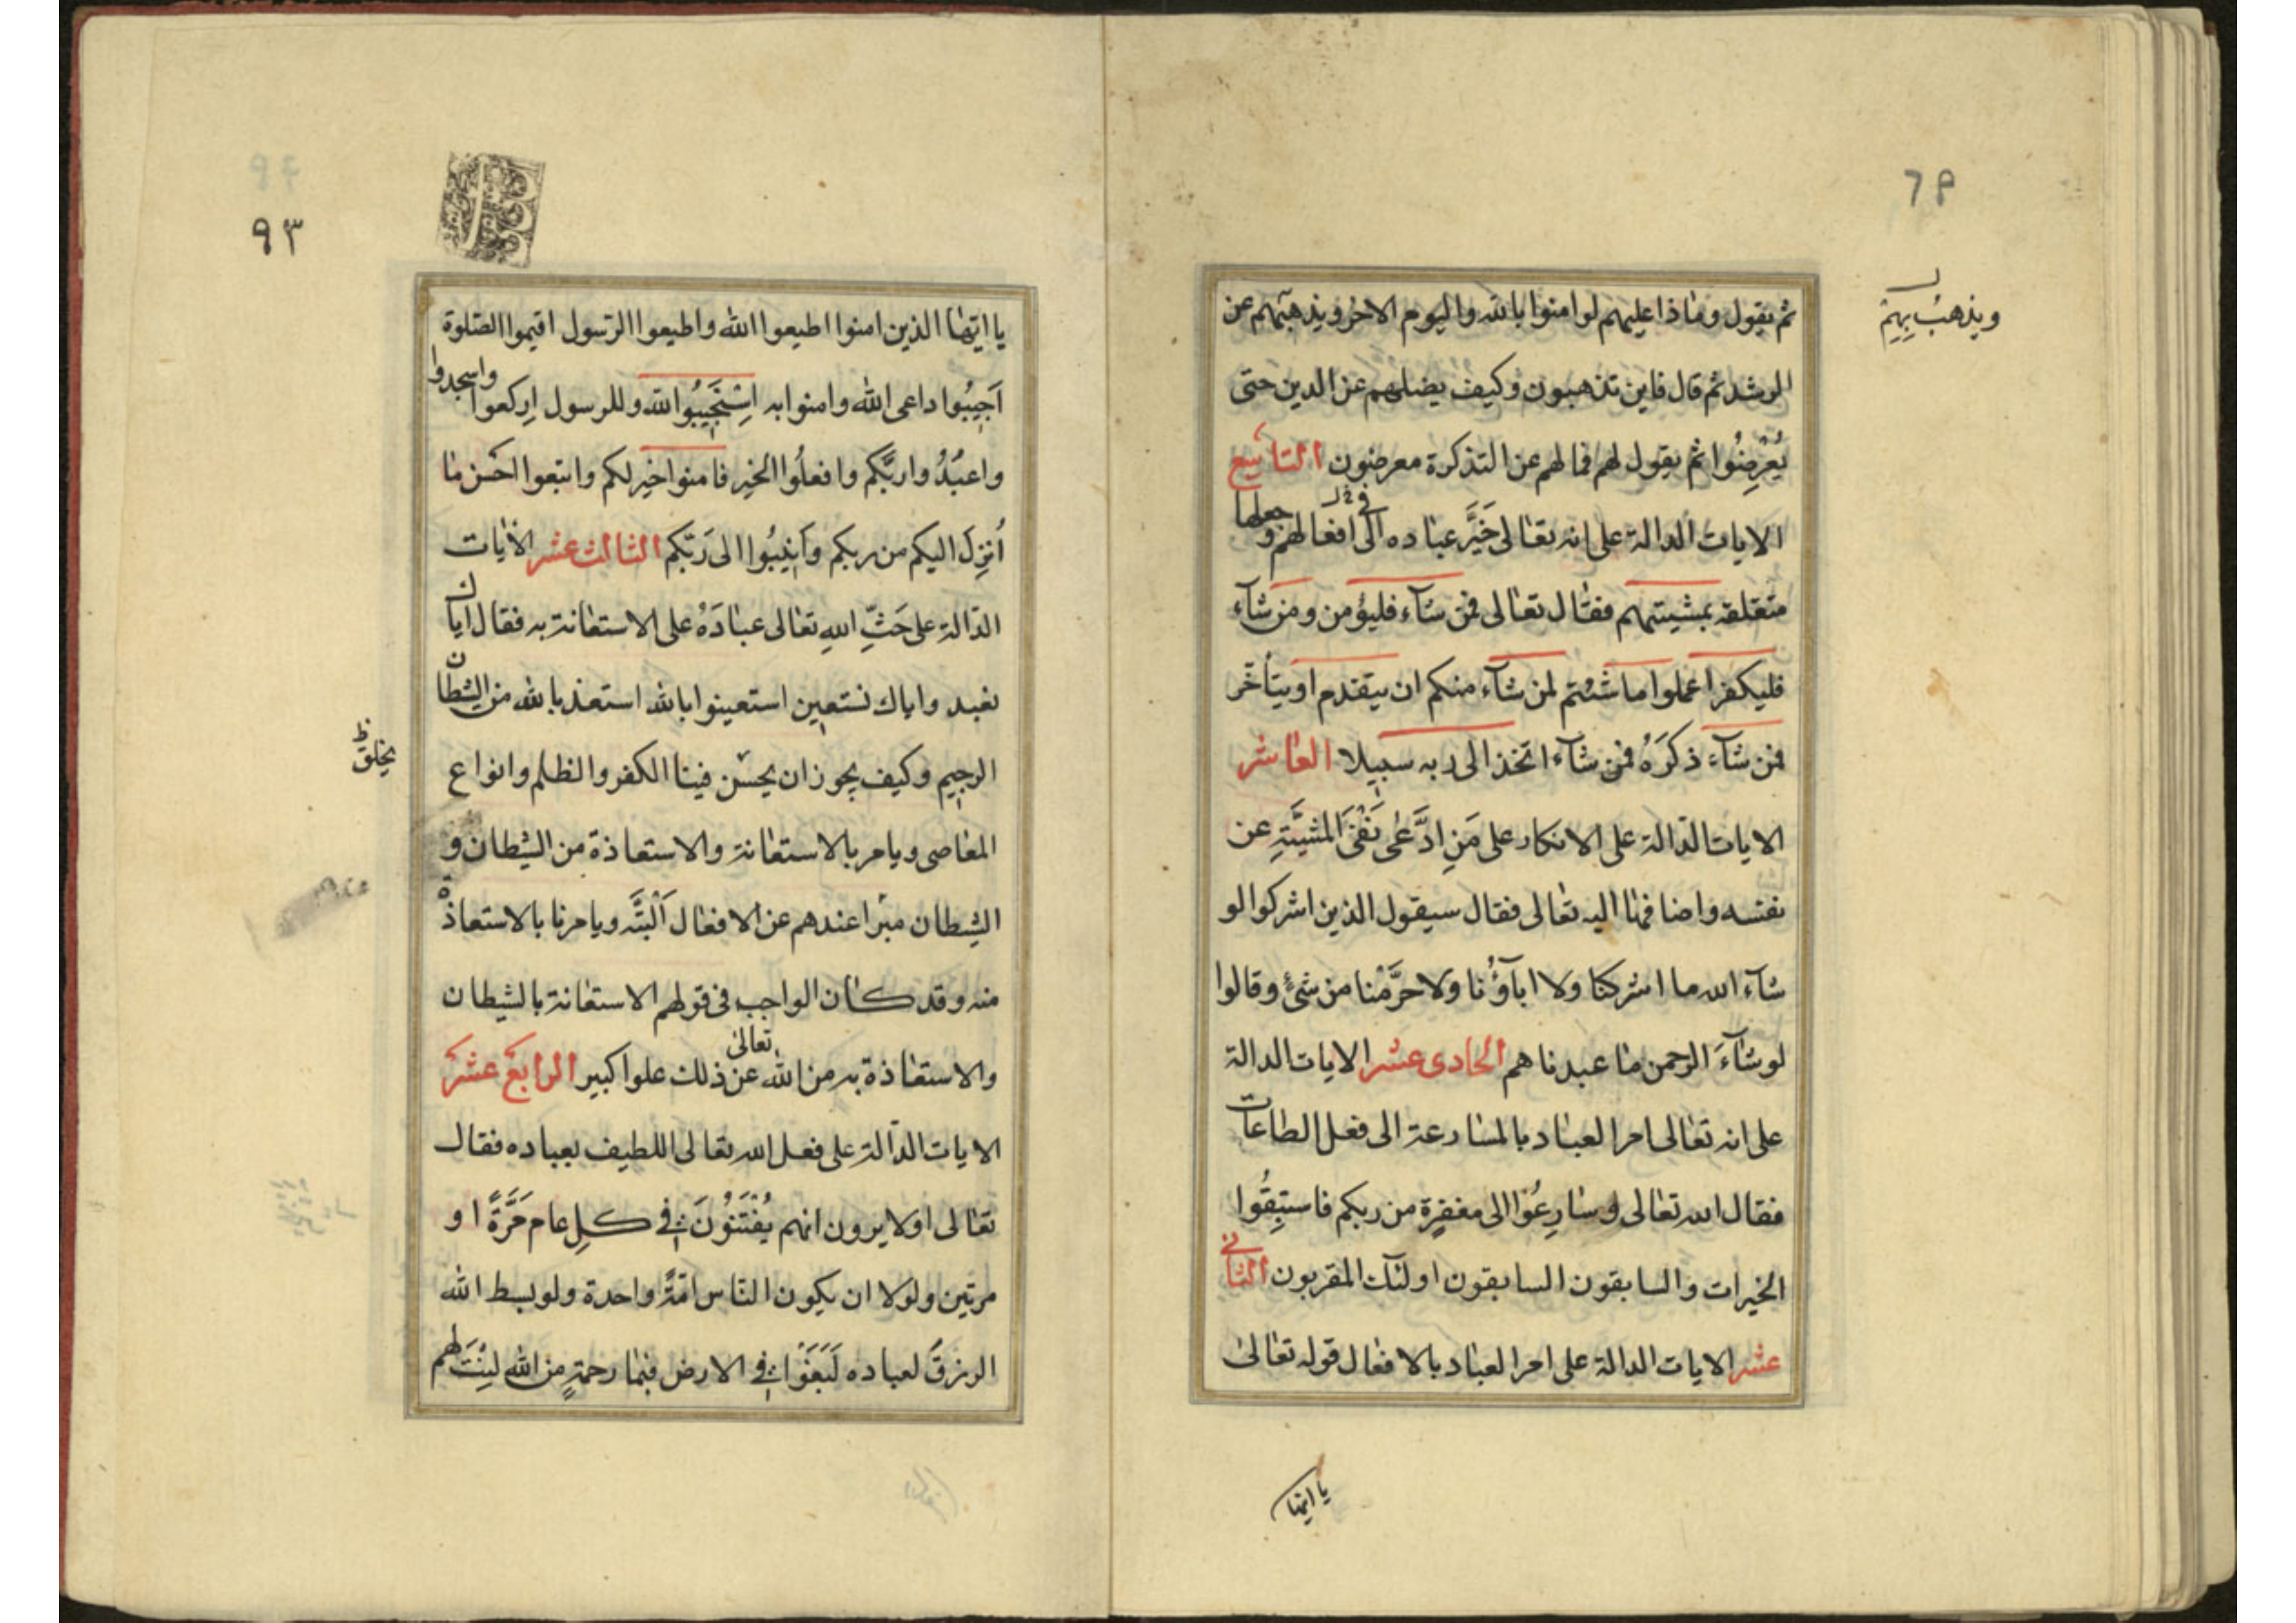 ثم يقول وماذا عليهم لو امنوا بالله واليوم الاخر ويذهبهم عن
ويذهب بهم
الرشد ثم قال فاين تذهبون وكيف يضلهم عن الدين حتى
يُعْرِضُوا ثم يقول لهم فمالهم عن التذكرة معرضين التاسع
الايات الدالة على انه تعالى خَيَّرَ عباده الى افعالهم و جعلها
في
متعلقة بمشيتهم فقال تعالى فمن شآء فليؤمن ومن شآء
فليكفر اعملوا ما شئتم لمن شآء منكم ان يتقدم او يتأخر
فمن شآء ذكَرَهُ فمن شآء اتخذ الى ربه سبيلا العاشر
الايات الدالة على الانكار على مَنِ ادَّعى نَفْىَ المشيَّةِ عن
نفسه واضافتها اليه تعالى فقال سيقول الذين اشركوا لو
شآء الله ما اشركنا ولا اباؤُنا ولا حرَّمْنا من شئ وقالوا
لو شآءَ الرحمن ما عبدناهم الحادى عشر الايات الدالة
على انه تعالى امر العباد بالمسارعة الى فعل الطاعات
فقال الله تعالى وسارِعُوا الى مغفرة من ربكم فاستبِقُوا
الخيرات والسابقون السابقون اولئك المقربون الثانى
عشر الايات الدالة على امر العباد بالافعال قوله تعالى
يا ايها
٩٣
يا ايها الذين امنوا اطيعوا الله واطيعوا الرسول اقيموا الصلوة
اَجِيبُوا داعى الله وامنوا به اسْتَجِيبُوا لله وللرسول اركعوا واسجدوا
واعبُدُوا ربَّكم وافعلُوا الخير فامنوا خير لكم واتبعوا احسن ما
اُنزِلَ اليكم من ربكم واَنِيبُوا الى رَبّكم الثالث عشر الايات
الدالة على حَثِّ اللهِ تعالى عبادَهُ على الاستعانة به فقال اياك
نعبد واياك نستعين استعينوا بالله استعذ بالله من الشيطان
الرجيم وكيف يجوز ان يحسن فينا الكفر والظلم وانواع
يخلق ظ
المعاصى ويامر بالاستعانة والاستعاذة من الشيطان و
الشيطان مبرا عندهم عن الافعال اَلْبَتَّه ويامرنا بالاستعاذة
منه وقد كان الواجب فى قولهم الاستعانة بالشيطان
والاستعاذة به من الله تعالى عن ذلك علوا كبير الرابع عشر
الايات الدالة على فعل الله تعالى اللطيف بعباده فقال
تعالى اولا يرون انهم يُفْتَنُونَ فى كلِ عام مَرَّةً او
مرتين ولولا ان يكون الناس امّةً واحدة ولو بسط الله
الرزقَ لعباده لَبَغَوْا فى الارض فبما رحمةٍ من الله لِنْتَ لهم